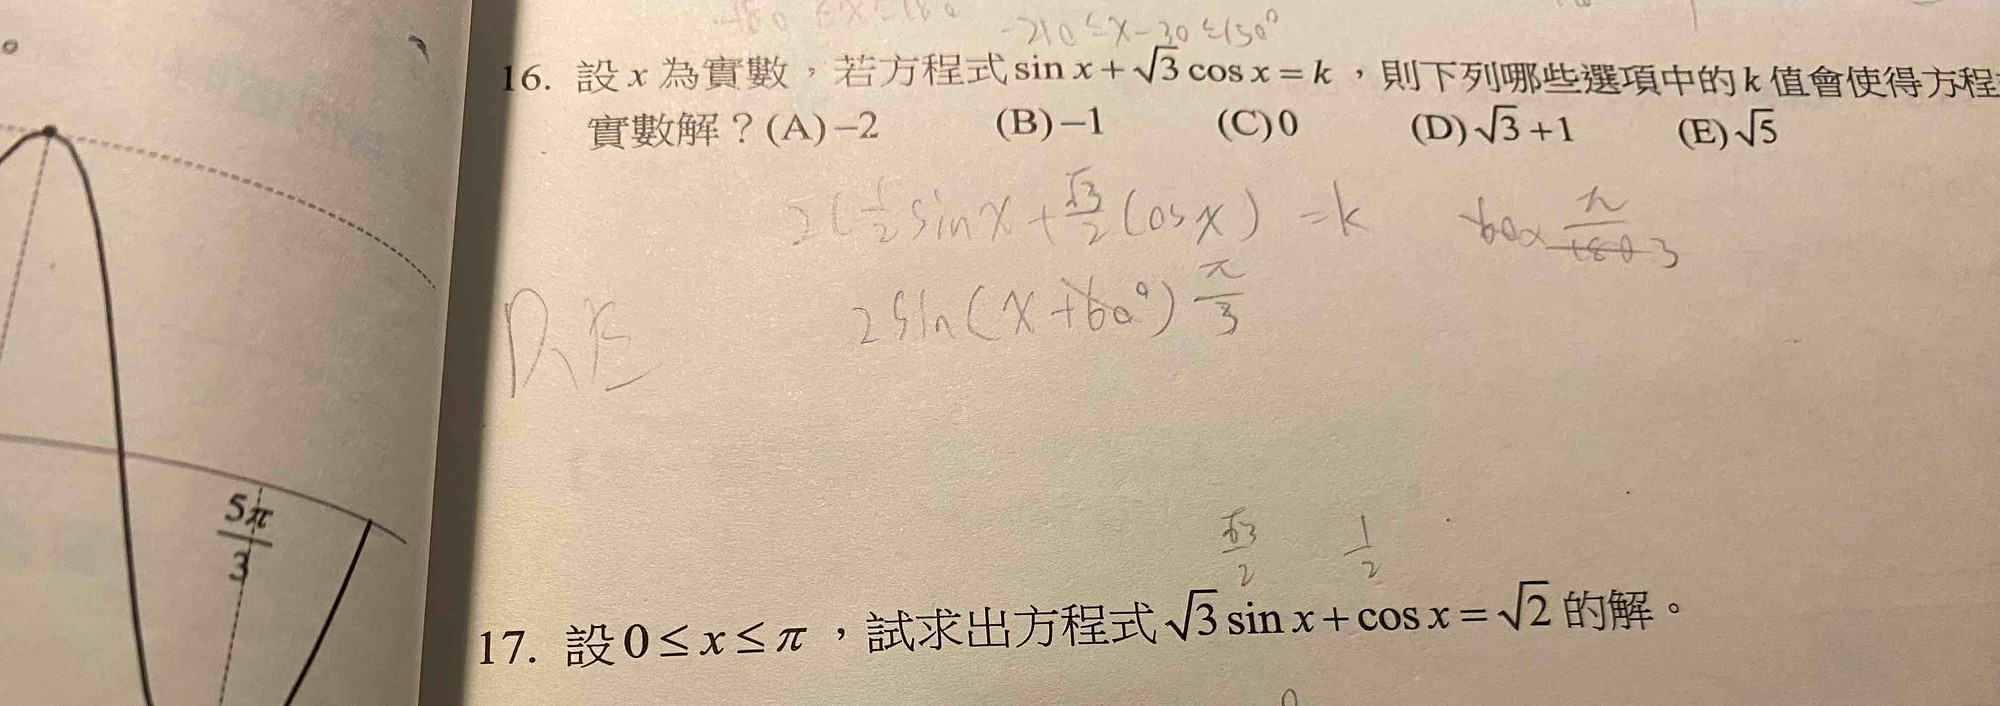 -210≤x-30≤150°
16. 設 x 為實數，若方程式 sin x + √3 cos x = k ，則下列哪些選項中的 k 值會使得方程
實數解？(A) −2 (B) −1 (C) 0 (D) √3 + 1 (E) √5
2(1/2 sin x + √3/2 cos x) = k
60× π/180 3
2sin(x+60°) π/3
D、E
5π/3
√3/2 1/2
17. 設 0 ≤ x ≤ π ，試求出方程式 √3 sin x + cos x = √2 的解。